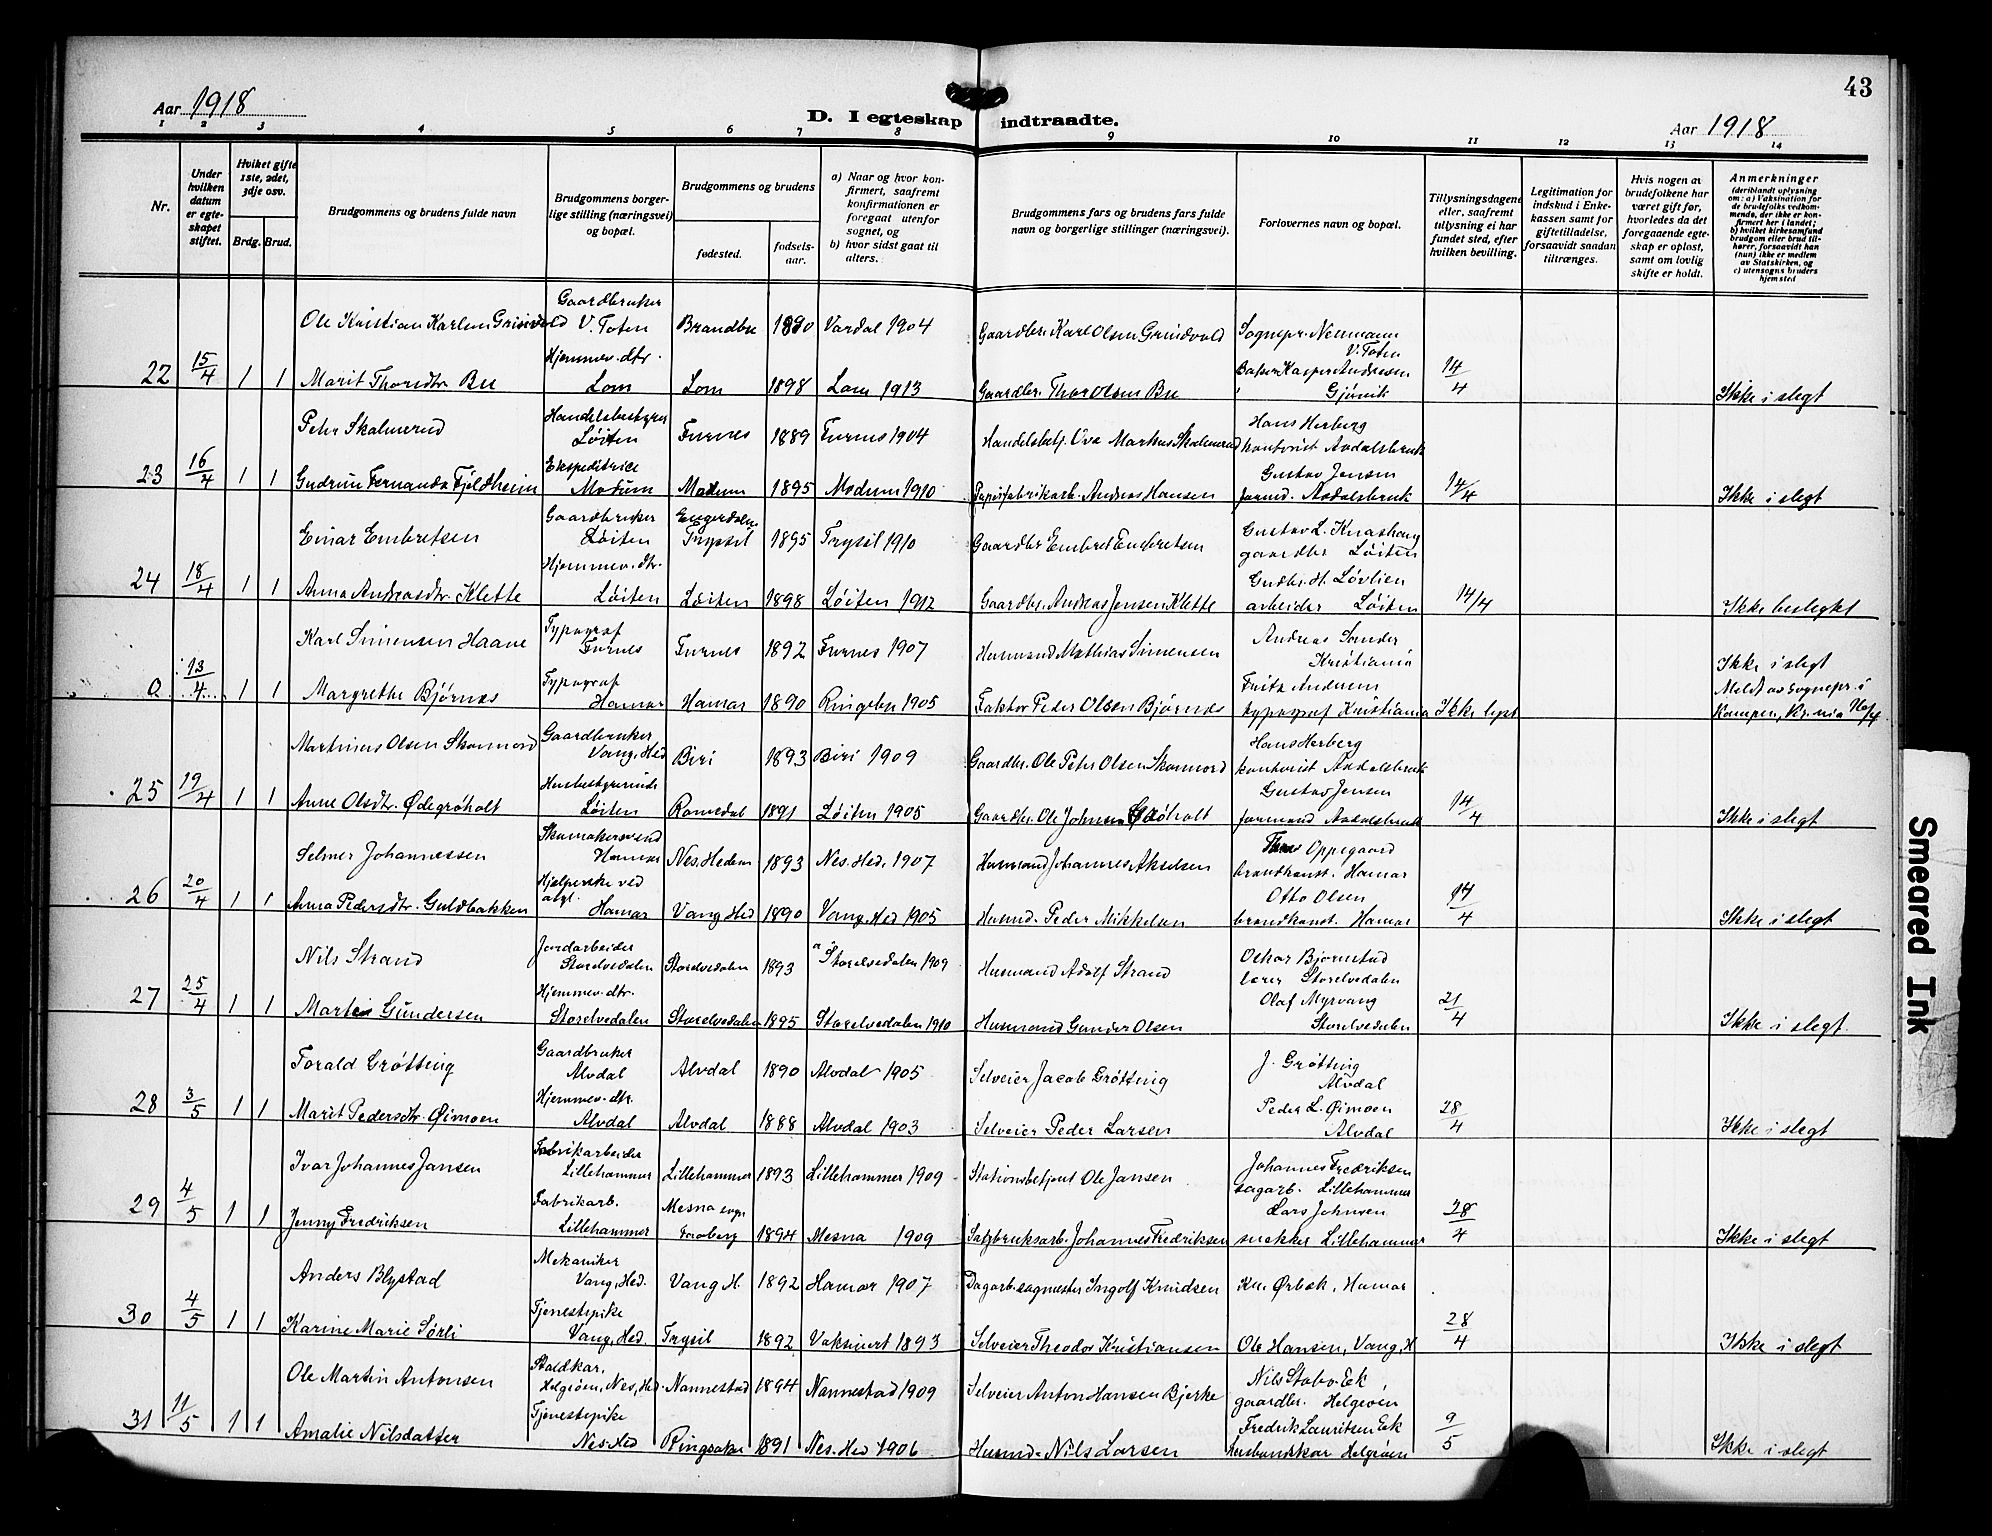 43
Aar 1918
D. I egteskap indtraadte.
Aar 1918
1 2 3 4 5 6 7 8 9 10 11 12 13 14
Nr.
Under hvilken datum er egteskapet stiftet.
Hvilket gifte 1ste, 2det, 3dje osv.
Brdg. Brud.
Brudgommens og brudens fulde navn
Brudgommens borgerlige stilling (næringsvei) og bopæl.
Brudgommens og brudens
fødested.
fødselsaar.
a) Naar og hvor konfirmert, saafremt konfirmationen er foregaat utenfor sognet, og
b) hvor sidst gaat til alters.
Brudgommens fars og brudens fars fulde navn og borgerlige stillinger (næringsvei).
Forlovernes navn og bopæl.
Tillysningsdagene eller, saafremt tillysning ei har fundet sted, efter hvilken bevilling.
Legitimation for indskud i Enkekassen samt for giftetilladelse, forsaavidt saadan tiltrænges.
Hvis nogen av brudefolkene har været gift før, hvorledes da det foregaaende egteskap er opløst, samt om lovlig skifte er holdt.
Anmerkninger
(deriblandt oplysning om: a) Vaksination for de brudefolks vedkommende, der ikke er konfirmert her i landet; b) hvilket kirkesamfund brudgom eller brud tilhører, forsaavidt han (hun) ikke er medlem av Statskirken, og c) utensogns bruders hjemsted
Ole Kristian Karlsen Grinivold Gaardbruker V. Toten Brandbu 1890 Vardal 1904 Gaardbr. Karl Olsen Grindvold Sognepr. Neumann V. Toten
22 15/4 1 1 Marit Thorsdtr. Bu Hjemmev. dtr. Lom Lom 1898 Lom 1913 Gaardbr. Thor Olsen Bu Baker Kasper Andresen Gjøvik 14/4 Ikke i slegt
Peder Skalmerud Handelsbestyrer Løiten Furnes 1889 Furnes 1904 Handelsbetj. Ove Markus Skalmerud Hans Herberg kontorist Aadalsbruk
23 16/4 1 1 Gudrun Fernanda Fjeldheim Ekspeditrice Modum Modum 1895 Modum 1910 Papirfabrikarb. Andreas Hansen Gustav Jensen formd. Aadalsbruk 14/4 Ikke i slegt
Einar Embretsen Gaardbruker Løiten Engerdalen Trysil 1895 Trysil 1910 Gaardbr Embret Embretsen Gustav L. Knashaug gaardbr Løiten
24 18/4 1 1 Anna Andreasdtr. Klette Hjemmev. dtr. Løiten Løiten 1898 Løiten 1912 Gaardbr. Andreas Jensen Klette Gudbr. H. Løvlien arbeider Løiten 14/4 Ikke beslegtet
Karl Simensen Haave Typograf Furnes Furnes 1892 Furnes 1907 Husmand Mathias Simensen Andreas Sander Kristiania
0 13/4 1 1 Margrethe Bjørnæs Typograf Hamar Hamar 1890 Ringebu 1905 Faktor Peder Olsen Bjørnæs Fritz Andersen typograf Kristiania Ikke lyst Ikke i slegt Meldt av sognepr. i Kampen, Kr.nia
Martinus Olsen Skonnord Gaardbruker Vang, Hed Biri 1893 Biri 1909 Gaardbr. Ole Peter Olsen Skonnord Hans Herberg kontorist Aadalsbruk
25 19/4 1 1 Anne Olsdtr. Ødegrøholt Husbestyrerinde Løiten Romedal 1891 Løiten 1905 Gaardbr. Ole Johnsen Grøholt Gustav Jensen formand Aadalsbruk 14/4 Ikke i slegt
Selmer Johannessen Skomakersvend Hamar Nes. Hedem 1893 Nes. Hed. 1907 Husmand Johannes Akselsen Thos Oppegaard brandkonst. Hamar
26 20/4 1 1 Anna Pedersdtr. Guldbakken Hjelperske ved Hamar Vang Hed 1890 Vang, Hed 1905 Husmd. Peder Mikkelsen Otto Olsen brandkonst. Hamar 14/4 Ikke i slegt
Nils Strand Jordarbeider Storelvedalen Storelvedalen 1893 a Storelvedalen 1909 Husmand Adolf Strand Oskar Bjørnstad lærer Storelvedalen
27 25/4 1 1 Martin Gundersen Hjemmev. dtr. Storelvedalen Storelvedalen 1895 Storelvedalen 1910 Husmand Gunder Olsen Olaf Myrvang Storelvedalen 21/4 Ikke i slegt.
Torald Grøtting Gaardbruker Alvdal Alvdal 1890 Alvdal 1905 Selveier Jacob Grøtting J. Grøtting Alvdal
28 3/5 1 1 Marit Pedersdtr. Øimoen Hjemmev. dtr. Alvdal Alvdal 1888 Alvdal 1903 Selveier Peder Larsen Peder L. Øimoen Alvdal 28/4 Ikke i slegt
Ivar Johannes Jansen Fabrikarbeider Lillehammer Lillehammer 1893 Lillehammer 1909 Stationsbetjent Ole Jansen Johannes Fredriksen sagarb. Lillehammer
29 4/5 1 1 Jenny Fredriksen Fabrikarb. Lillehammer Mesna sogn Faaberg 1894 Mesna 1909 Sagbruksarb. Johannes Fredriksen Lars Johnsen snekker Lillehammer 28/4 Ikke i slegt
Anders Blystad Mekaniker Vang, Hed. Vang H. 1892 Hamar 1907 Dagarb. sagmester Ingolf Knudsen Kr. Ørbæk, Hamar
30 4/5 1 1 Karine Marie Sørli Tjenestepike Vang, Hed. Trysil 1892 Vaksinert 1893 Selveier Theodor Kristiansen Ole Hansen, Vang, H 28/4 Ikke i slegt
Ole Martin Antonsen Staldkar, Helgøen, Nes, Hed Nannestad 1894 Nannestad 1909 Selveier Anton Hansen Bjerke Nils Stabo Ek gaardbr. Helgøen
31 11/5 1 1 Amalie Nilsdatter Tjenestepike Nes. Hed Ringsaker 1891 Nes. Hed 1906 Husmd. Nils Larsen Fredrik Lauritsen Ek husbondskar Helgøen 9/5 Ikke i slegt
Smeared Ink